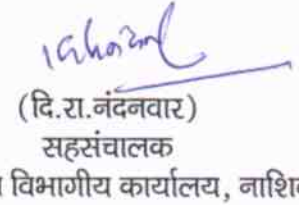 (दि.रा.नंदनवार)
सहसंचालक
विभागीय कार्यालय,